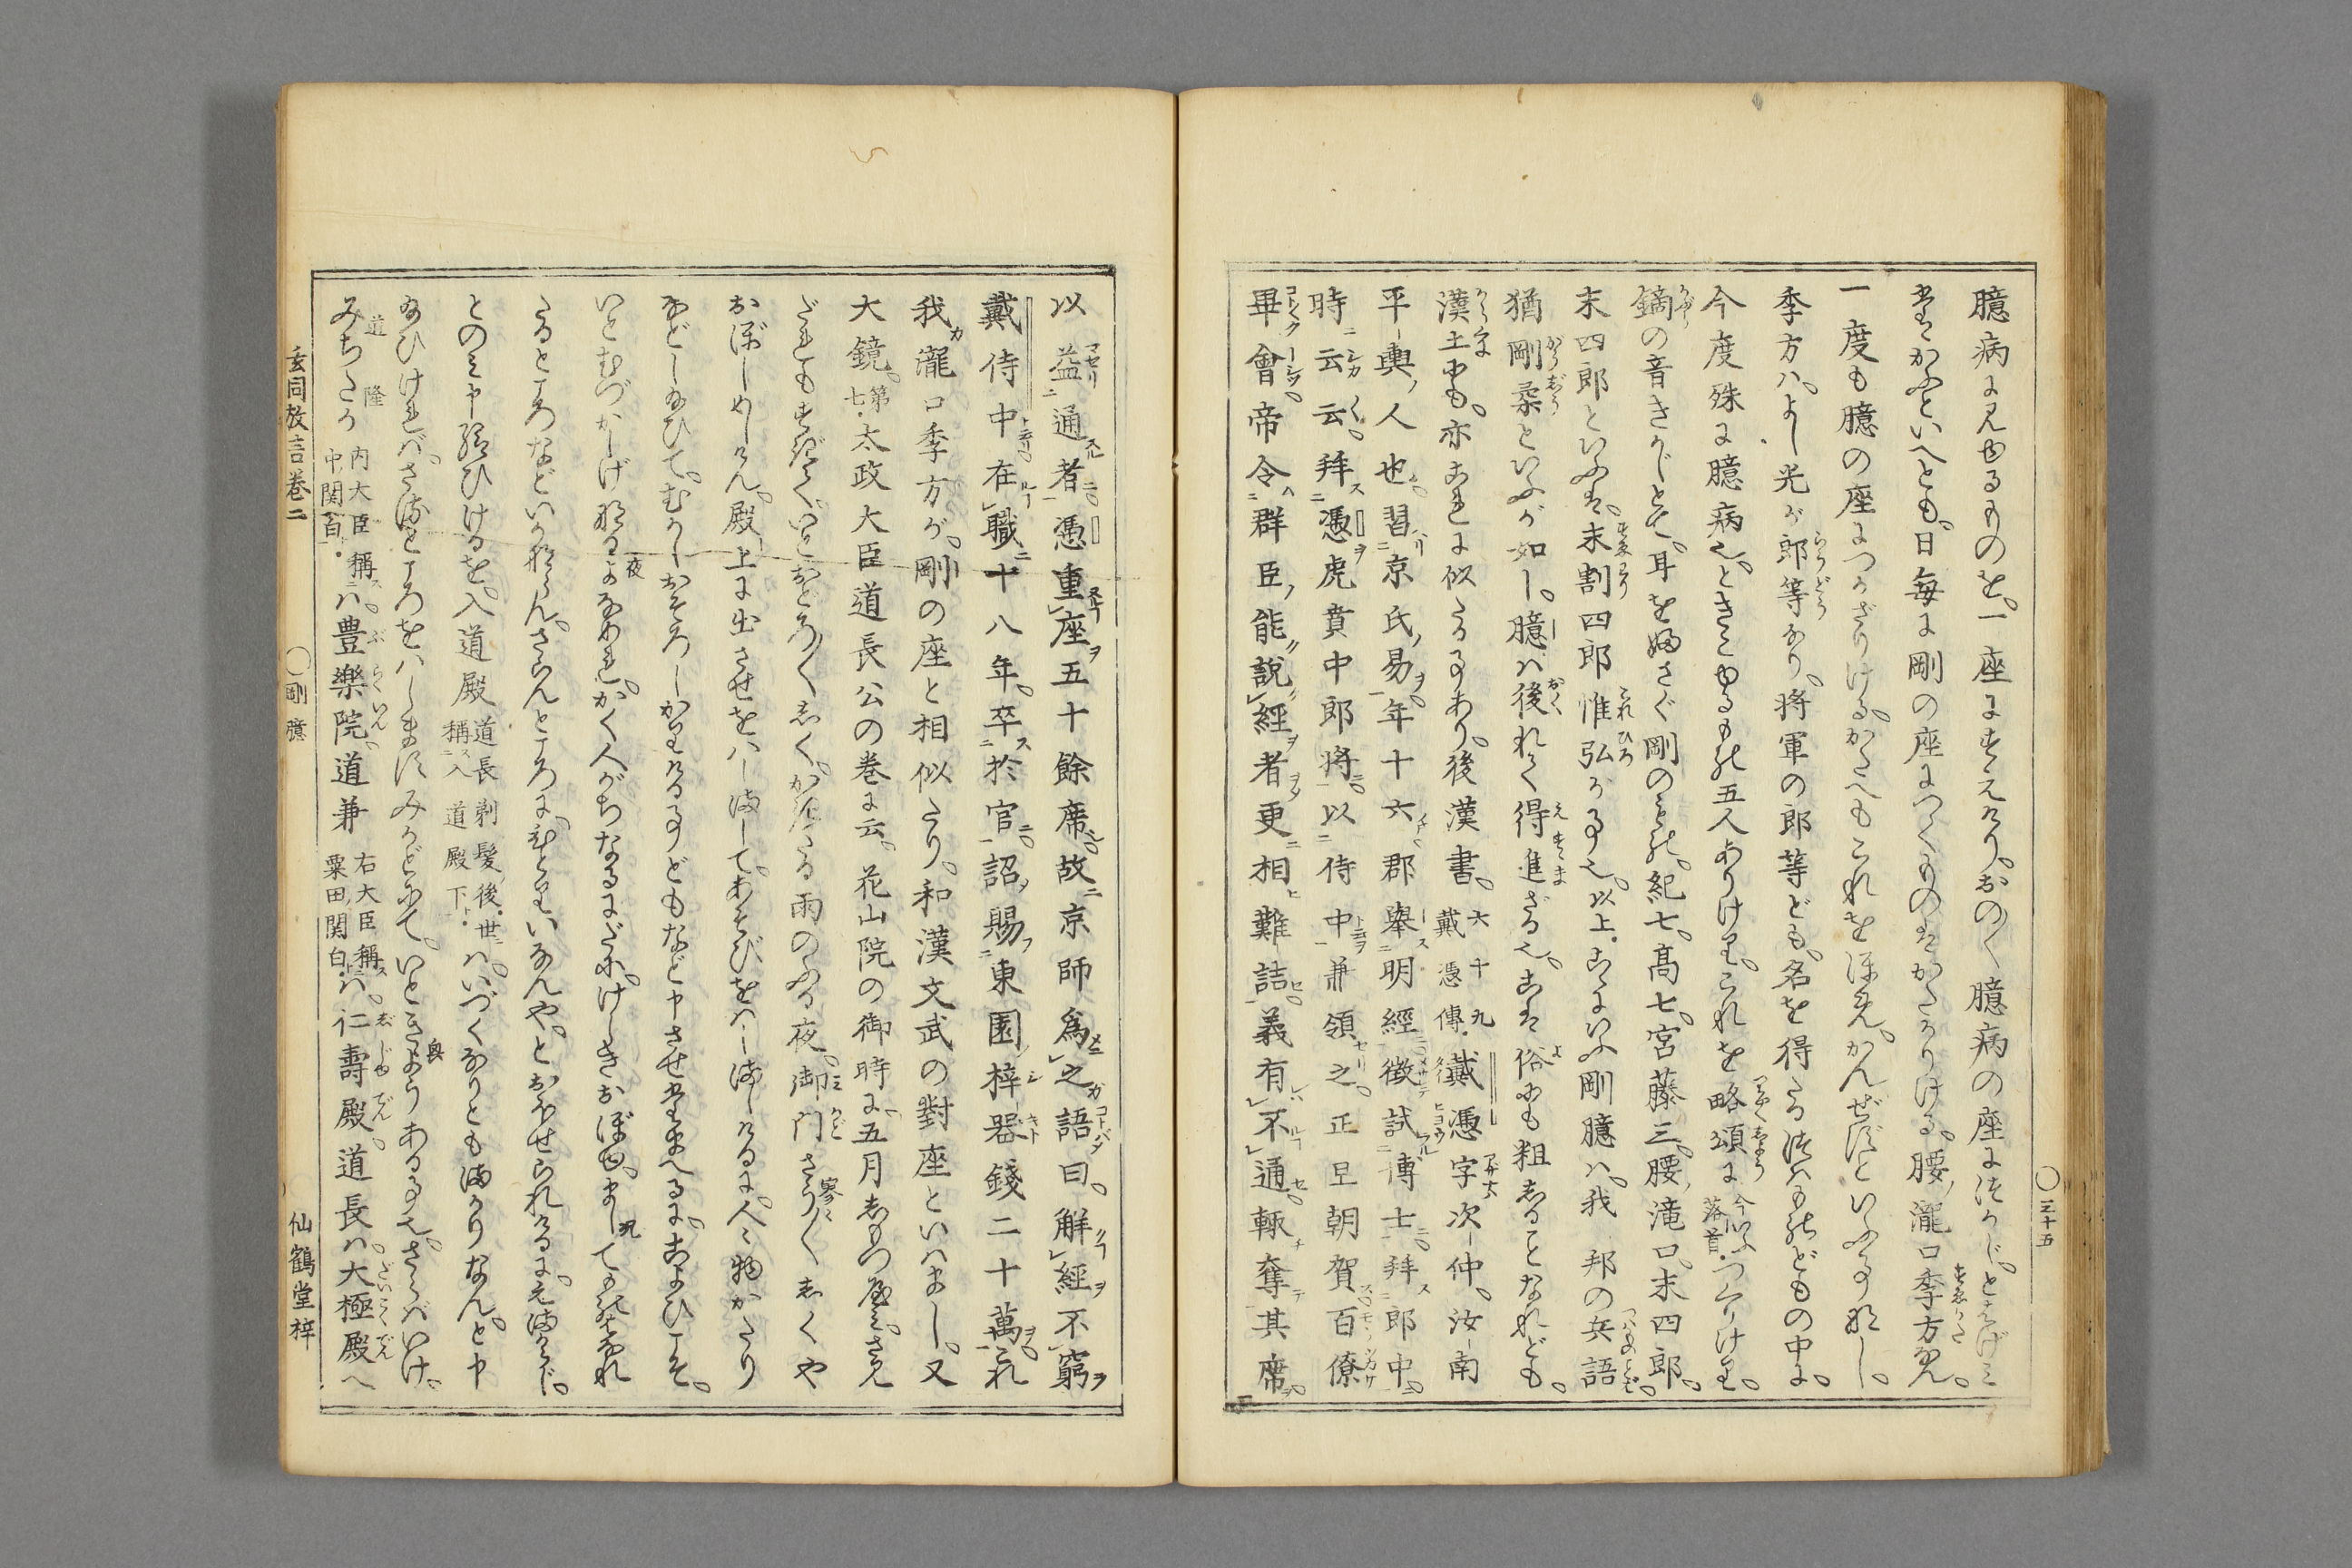 臆病に見ゆるものを。一座にすえたり。おの〱臆病の座に著かじ。とはげみ
たゝかふといへとも。日毎に剛の座につくものはかたかりける。腰瀧口季方なん。
一度も臆の座につかざりける。かたへもこれをほめかんぜずといふ事なし。
季方ハ。よし光が郎等なり。将軍の郎等ども。名を得たる兵ものどもの中に。
今度殊に臆病也。ときこゆるもの五人ありけり。これを略頌に今いふ落首・つくりけり。
鏑の音きかじとて。耳を塞さぐ剛のもの。紀七。高七。宮藤三。腰滝口。末四郎。
末四郎といふは。末割四郎惟弘が事也。以上。こゝにいふ剛臆ハ。我邦の兵語
猶剛柔といふが如し。臆ハ後れて得進ざる也。こは俗にも粗しることなれども。
漢土にも。亦これに似たる事あり。後漢書。六十九戴憑傳・戴憑字次仲。汝南
平輿人也。習京氏易。年十六。郡舉明經徴試博士。拜郎中。
時云云。拜憑虎賁中郎將。以侍中兼領之。正旦朝賀百僚
畢會。帝令群臣能說經者更相難詰。義有不通。輒奪其席。
以益通者。憑重座五十餘席。故京師爲之語曰。解經不窮
戴侍中。在職十八年。卒於官。詔賜東園梓器錢二十萬。これ
我瀧口季方が。剛の座と相似たり。和漢文武の對座といはまし。又
大鏡。第七・太政大臣道長公の巻に云。花山院の御時に。五月しもつ闇に。さみ
だれもすぎて。いとおどろ〱しく。かきたる雨のふる夜。御門さう〲しくや
おぼしめしけん。殿上に出させをハしまして。あそびをハしましけるに。人〻物かたり
などし給ひて。むかしおそろしかりける事どもなど申させたまへるに。こよひこそ。
いとむづかしげなる夜なめれ。かく人がちなるにだに。けしきおぼゆ。まして物はなれ
たるところなどいかならん。さらんところに。ひとりいなんや。とおほせられけるに。えまからじ。
とのみ申給ひけるを。入道殿道長剃髮後・世ニ稱ス入道殿下ト・ハ。いづくなりともまかりなん。と申
給ひければ。さるところをハします みかどにて。いときようある事也。さらばいけ。
みちたか内大臣稱ス中関白・ハ。豊樂院。道兼右大臣稱ス粟田関白・ハ。仁壽殿。道長ハ。大極殿へ
玄同放言巻二
〇剛臆
仙鶴堂梓
〇三十五